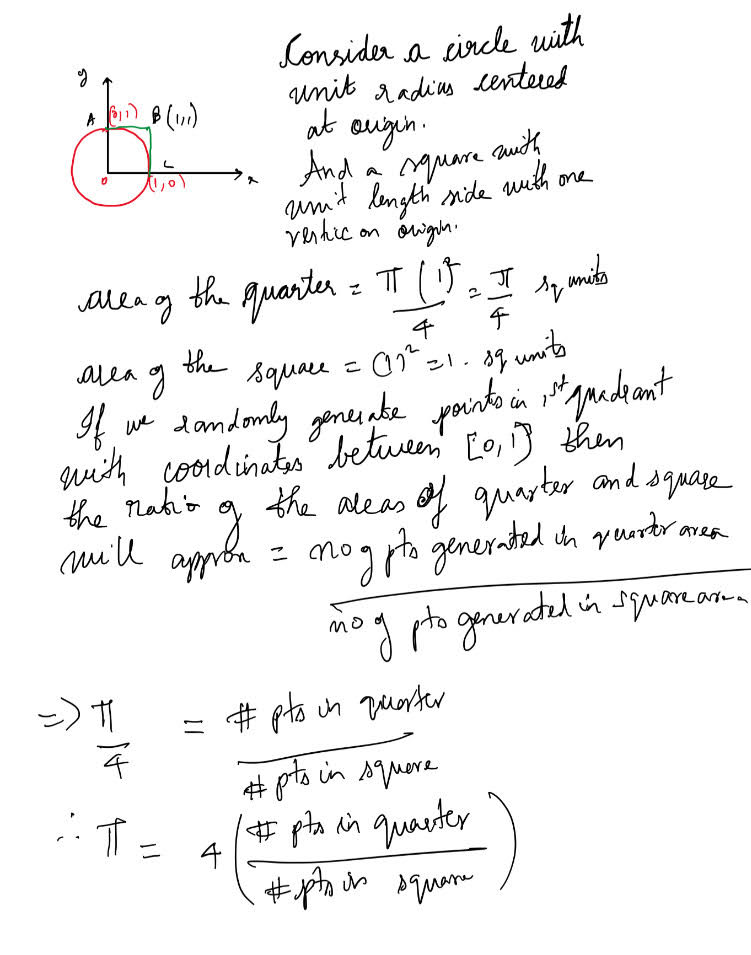 Consider a circle with
unit radius centered
at origin.
And a square with
unit length side with one
vertic on origin.
y
A (0,1) B (1,1)
C
O (1,0) x
area of the quarter = π(1)²/4 = π/4 sq units
area of the square = (1)² = 1. sq units
If we randomly generate points in 1st quadrant
with coordinates between [0,1] then
the ratio of the areas of quarter and square
will approx = no of pts generated in quarter area
no of pts generated in square area
=> π/4 = # pts in quarter
# pts in square
∴ π = 4 ( # pts in quarter
# pts in square )